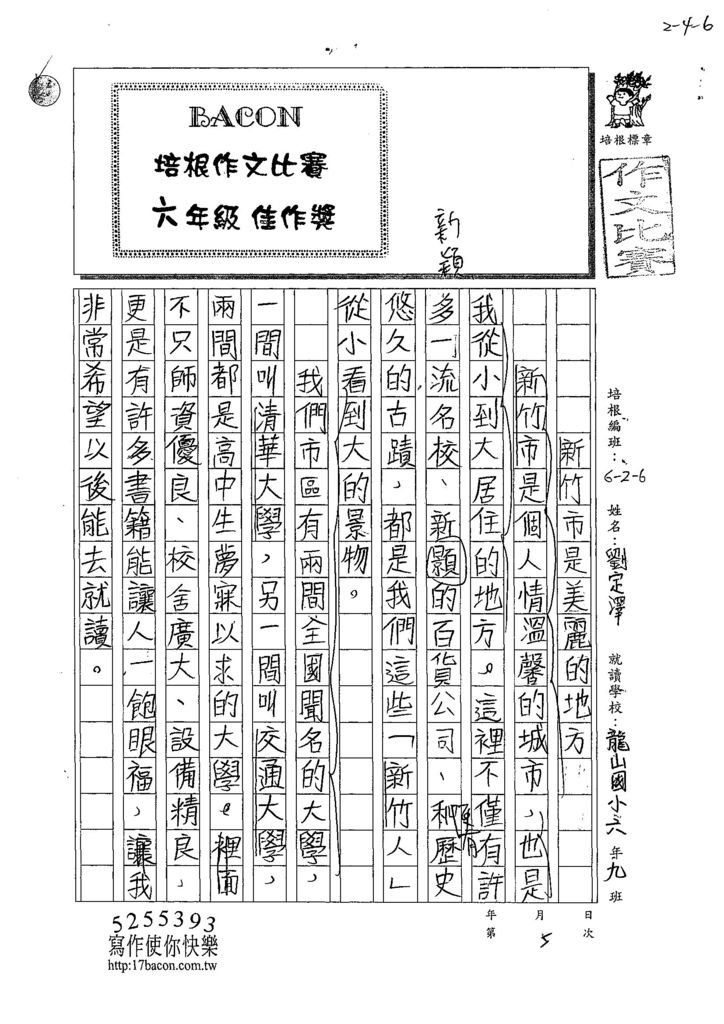 2-4-6
BACON
培根作文比賽
六年級 佳作獎
新穎
培根標章
作文比賽
培根編班：6-2-6 姓名：劉定澤 就讀學校：龍山國小六年九班
新竹市是美麗的地方
新竹市是個人情溫馨的城市，也是
我從小到大居住的地方。這裡不僅有許
多一流名校、新顥的百貨公司、和歷史
更有
悠久的古蹟，都是我們這些「新竹人」
從小看到大的景物。
我們市區有兩間全國聞名的大學，
一間叫清華大學，另一間叫交通大學，
兩間都是高中生夢寐以求的大學。裡面
不只師資優良、校舍廣大、設備精良，
更是有許多書籍能讓人一飽眼福，讓我
非常希望以後能去就讀。
年 月 日
第 5 次
5255393
寫作使你快樂
http:17bacon.com.tw